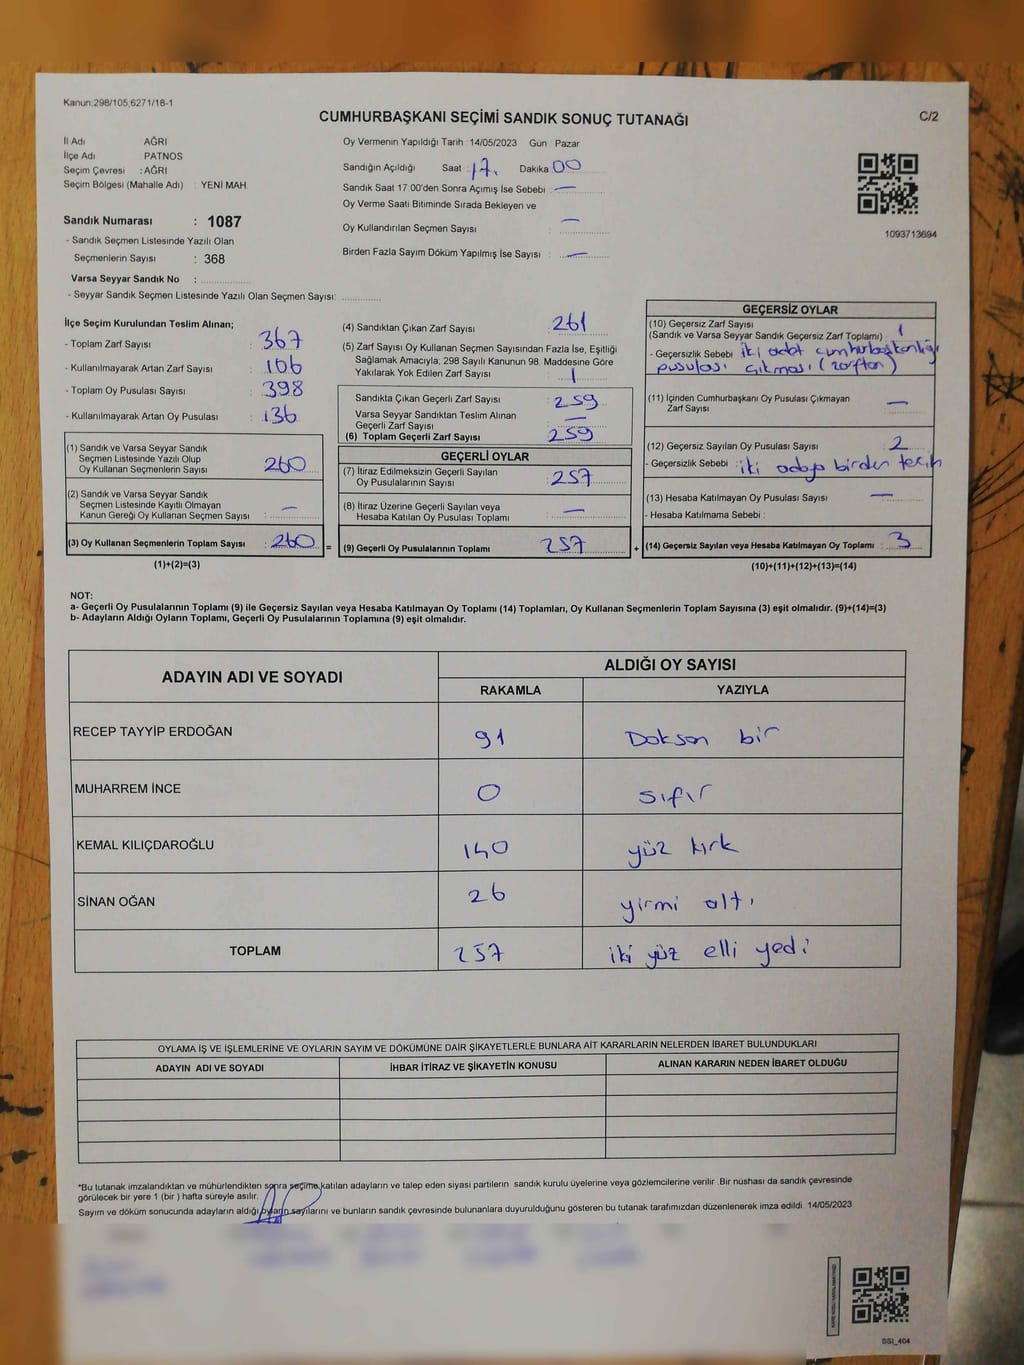 Kanun:298/105,6271/18-1
CUMHURBAŞKANI SEÇİMİ SANDIK SONUÇ TUTANAĞI
C/2
İl Adı AĞRI
İlçe Adı PATNOS
Seçim Çevresi : AĞRI
Seçim Bölgesi (Mahalle Adı) : YENİ MAH.
Oy Vermenin Yapıldığı Tarih :14/05/2023 Gün Pazar
Sandığın Açıldığı Saat : 17. Dakika 00
Sandık Saat 17.00'den Sonra Açımış İse Sebebi : —
Oy Verme Saati Bitiminde Sırada Bekleyen ve
Oy Kullandırılan Seçmen Sayısı : —
Birden Fazla Sayım Döküm Yapılmış İse Sayısı : —
1093713694
Sandık Numarası : 1087
- Sandık Seçmen Listesinde Yazılı Olan
Seçmenlerin Sayısı : 368
Varsa Seyyar Sandık No :
- Seyyar Sandık Seçmen Listesinde Yazılı Olan Seçmen Sayısı:
İlçe Seçim Kurulundan Teslim Alınan;
- Toplam Zarf Sayısı : 367
- Kullanılmayarak Artan Zarf Sayısı : 106
- Toplam Oy Pusulası Sayısı : 398
- Kullanılmayarak Artan Oy Pusulası : 136
(1) Sandık ve Varsa Seyyar Sandık
Seçmen Listesinde Yazılı Olup
Oy Kullanan Seçmenlerin Sayısı : 260
(2) Sandık ve Varsa Seyyar Sandık
Seçmen Listesinde Kayıtlı Olmayan
Kanun Gereği Oy Kullanan Seçmen Sayısı : —
(3) Oy Kullanan Seçmenlerin Toplam Sayısı : 260
(1)+(2)=(3)
=
(4) Sandıktan Çıkan Zarf Sayısı : 261
(5) Zarf Sayısı Oy Kullanan Seçmen Sayısından Fazla İse, Eşitliği
Sağlamak Amacıyla, 298 Sayılı Kanunun 98. Maddesine Göre
Yakılarak Yok Edilen Zarf Sayısı : 1
Sandıkta Çıkan Geçerli Zarf Sayısı : 259
Varsa Seyyar Sandıktan Teslim Alınan
Geçerli Zarf Sayısı : —
(6) Toplam Geçerli Zarf Sayısı : 259
GEÇERLİ OYLAR
(7) İtiraz Edilmeksizin Geçerli Sayılan
Oy Pusulalarının Sayısı : 257
(8) İtiraz Üzerine Geçerli Sayılan veya
Hesaba Katılan Oy Pusulası Toplamı : —
(9) Geçerli Oy Pusulalarının Toplamı : 257
+
GEÇERSİZ OYLAR
(10) Geçersiz Zarf Sayısı
(Sandık ve Varsa Seyyar Sandık Geçersiz Zarf Toplamı) : 1
- Geçersizlik Sebebi : iki adet cumhurbaşkanlığı
pusulası çıkması (zarftan)
(11) İçinden Cumhurbaşkanı Oy Pusulası Çıkmayan
Zarf Sayısı : —
(12) Geçersiz Sayılan Oy Pusulası Sayısı : 2
- Geçersizlik Sebebi : iki adaya birden tercih
(13) Hesaba Katılmayan Oy Pusulası Sayısı : —
- Hesaba Katılmama Sebebi :
(14) Geçersiz Sayılan veya Hesaba Katılmayan Oy Toplamı : 3
(10)+(11)+(12)+(13)=(14)
NOT:
a- Geçerli Oy Pusulalarının Toplamı (9) ile Geçersiz Sayılan veya Hesaba Katılmayan Oy Toplamı (14) Toplamları, Oy Kullanan Seçmenlerin Toplam Sayısına (3) eşit olmalıdır. (9)+(14)=(3)
b- Adayların Aldığı Oyların Toplamı, Geçerli Oy Pusulalarının Toplamına (9) eşit olmalıdır.
ADAYIN ADI VE SOYADI ALDIĞI OY SAYISI
RAKAMLA YAZIYLA
RECEP TAYYİP ERDOĞAN 91 Doksan bir
MUHARREM İNCE 0 sıfır
KEMAL KILIÇDAROĞLU 140 yüz kırk
SİNAN OĞAN 26 yirmi altı
TOPLAM 257 iki yüz elli yedi
OYLAMA İŞ VE İŞLEMLERİNE VE OYLARIN SAYIM VE DÖKÜMÜNE DAİR ŞİKAYETLERLE BUNLARA AİT KARARLARIN NELERDEN İBARET BULUNDUKLARI
ADAYIN ADI VE SOYADI İHBAR İTİRAZ VE ŞİKAYETİN KONUSU ALINAN KARARIN NEDEN İBARET OLDUĞU
*Bu tutanak imzalandıktan ve mühürlendikten sonra seçime katılan adayların ve talep eden siyasi partilerin sandık kurulu üyelerine veya gözlemcilerine verilir .Bir nüshası da sandık çevresinde
görülecek bir yere 1 (bir ) hafta süreyle asılır.
Sayım ve döküm sonucunda adayların aldığı oyların sayılarını ve bunların sandık çevresinde bulunanlara duyurulduğunu gösteren bu tutanak tarafımızdan düzenlenerek imza edildi. 14/05/2023
SSI_404